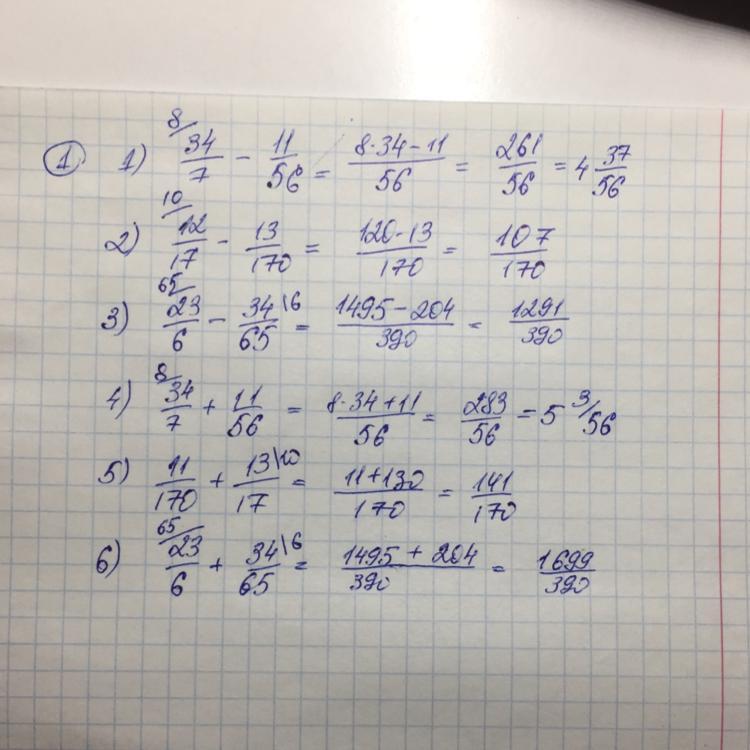 ① 1) 8/ 34/7 - 11/56 = (8·34-11)/56 = 261/56 = 4 37/56
2) 10/ 12/17 - 13/170 = (120-13)/170 = 107/170
3) 65/ 23/6 - 34/65 \6 = (1495-204)/390 = 1291/390
4) 8/ 34/7 + 11/56 = (8·34+11)/56 = 283/56 = 5 3/56
5) 11/170 + 13/17 \10 = (11+130)/170 = 141/170
6) 65/ 23/6 + 34/65 \6 = (1495 + 204)/390 = 1699/390